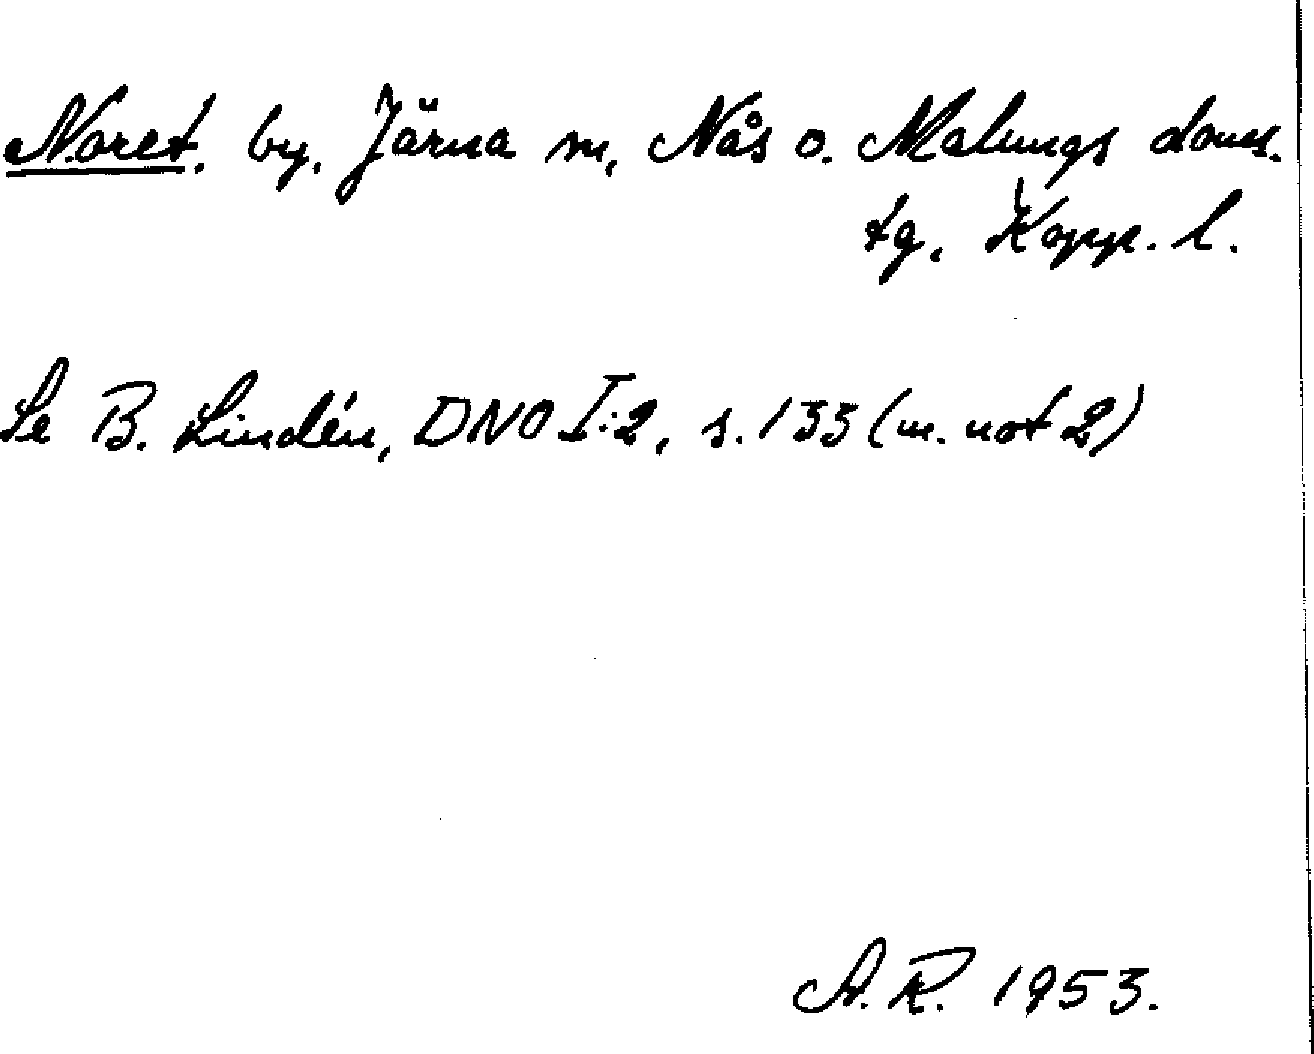 Noret, by, Järna sn, Nås o. Malungs doms.
tg, Kopp. l.
Se B. Lindén, DNO I:2, s. 133 (m. not 2)
A.R. 1953.